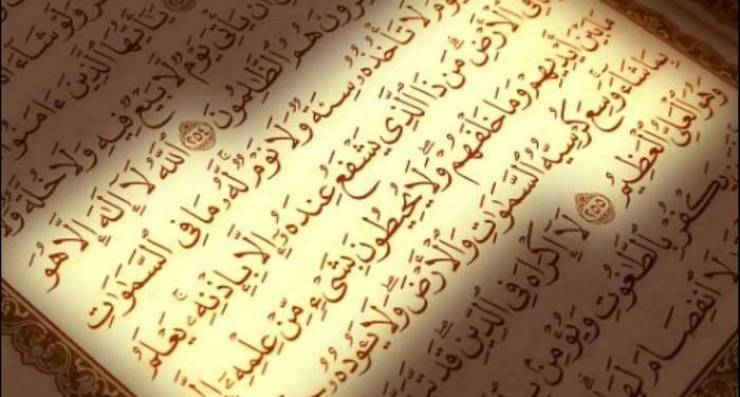 وَلَوْ شَآءَ
يَـٰٓأَيُّهَا ٱلَّذِينَ ءَامَنُوٓا۟
أَن يَأْتِىَ يَوْمٌ لَّا بَيْعٌ فِيهِ وَلَا خُلَّةٌ وَلَا
هُمُ ٱلظَّـٰلِمُونَ ٢٥٤ ٱللَّهُ لَآ إِلَـٰهَ إِلَّا هُوَ
لَا تَأْخُذُهُۥ سِنَةٌ وَلَا نَوْمٌ ۚ لَّهُۥ مَا فِى ٱلسَّمَـٰوَٰتِ
فِى ٱلْأَرْضِ ۗ مَن ذَا ٱلَّذِى يَشْفَعُ عِندَهُۥٓ إِلَّا بِإِذْنِهِۦ ۚ يَعْلَمُ
مَا بَيْنَ أَيْدِيهِمْ وَمَا خَلْفَهُمْ ۖ وَلَا يُحِيطُونَ بِشَىْءٍ مِّنْ عِلْمِهِۦٓ
بِمَا شَآءَ ۚ وَسِعَ كُرْسِيُّهُ ٱلسَّمَـٰوَٰتِ وَٱلْأَرْضَ ۖ وَلَا يَـُٔودُهُۥ
وَهُوَ ٱلْعَلِىُّ ٱلْعَظِيمُ ٢٥٥ لَآ إِكْرَاهَ فِى ٱلدِّينِ ۖ قَد
يَكْفُرْ بِٱلطَّـٰغُوتِ وَيُؤْمِنۢ
لَا ٱنفِصَامَ لَهَا